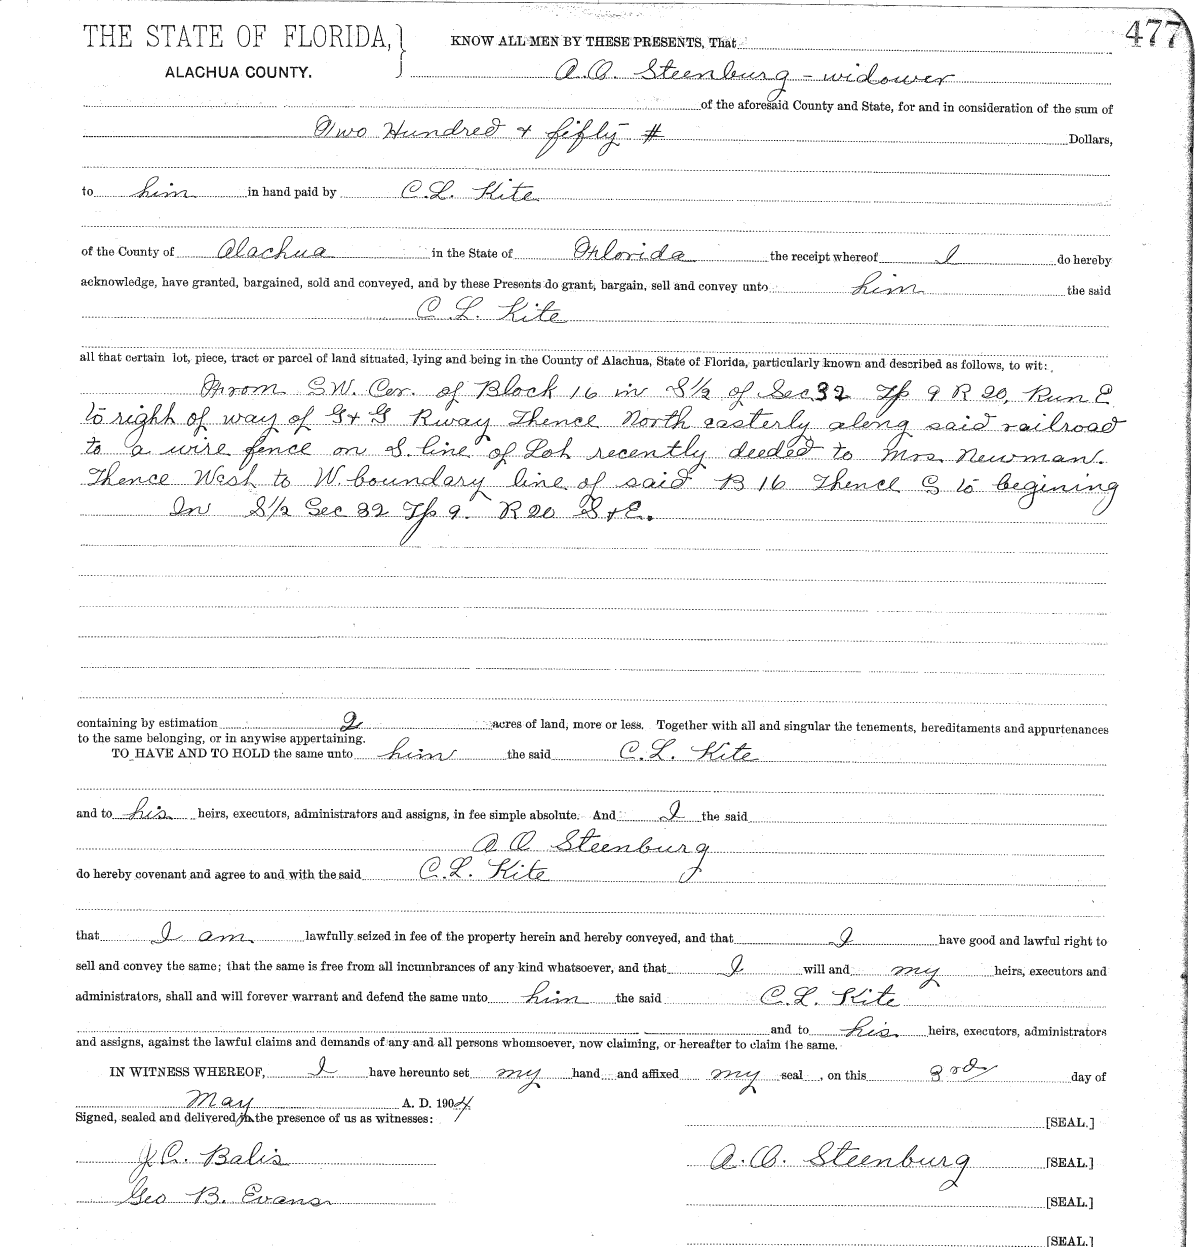 477
THE STATE OF FLORIDA,
ALACHUA COUNTY.
KNOW ALL MEN BY THESE PRESENTS, That
A.O. Steenburg - widower
of the aforesaid County and State, for and in consideration of the sum of
Two Hundred & fifty # Dollars,
to him in hand paid by C.L. Kite
of the County of Alachua in the State of Florida the receipt whereof I do hereby
acknowledge, have granted, bargained, sold and conveyed, and by these Presents do grant, bargain, sell and convey unto him the said
C. L. Kite
all that certain lot, piece, tract or parcel of land situated, lying and being in the County of Alachua, State of Florida, particularly known and described as follows, to wit:
From S.W. Cor. of Block 16 in S½ of Sec 32 Tp 9 R 20, Run E
to right of way of G & G Rway Thence North easterly along said railroad
to a wire fence on S. line of Lot recently deeded to Mrs Newman.
Thence West to W. boundary line of said B 16 Thence S to begining
In S½ Sec 32 Tp 9. R 20 S & E.
containing by estimation 2 acres of land, more or less. Together with all and singular the tenements, hereditaments and appurtenances
to the same belonging, or in anywise appertaining.
TO HAVE AND TO HOLD the same unto him the said C. L. Kite
and to his heirs, executors, administrators and assigns, in fee simple absolute. And I the said
A O Steenburg
do hereby covenant and agree to and with the said C. L. Kite
that I am lawfully seized in fee of the property herein and hereby conveyed, and that I have good and lawful right to
sell and convey the same; that the same is free from all incumbrances of any kind whatsoever, and that I will and my heirs, executors and
administrators, shall and will forever warrant and defend the same unto him the said C. L. Kite
and to his heirs, executors, administrators
and assigns, against the lawful claims and demands of any and all persons whomsoever, now claiming, or hereafter to claim the same.
IN WITNESS WHEREOF, I have hereunto set my hand and affixed my seal, on this 3rd day of
May A. D. 1904
Signed, sealed and delivered in the presence of us as witnesses: [SEAL.]
J.C. Balis A. O. Steenburg [SEAL.]
Geo B. Evans [SEAL.]
[SEAL.]